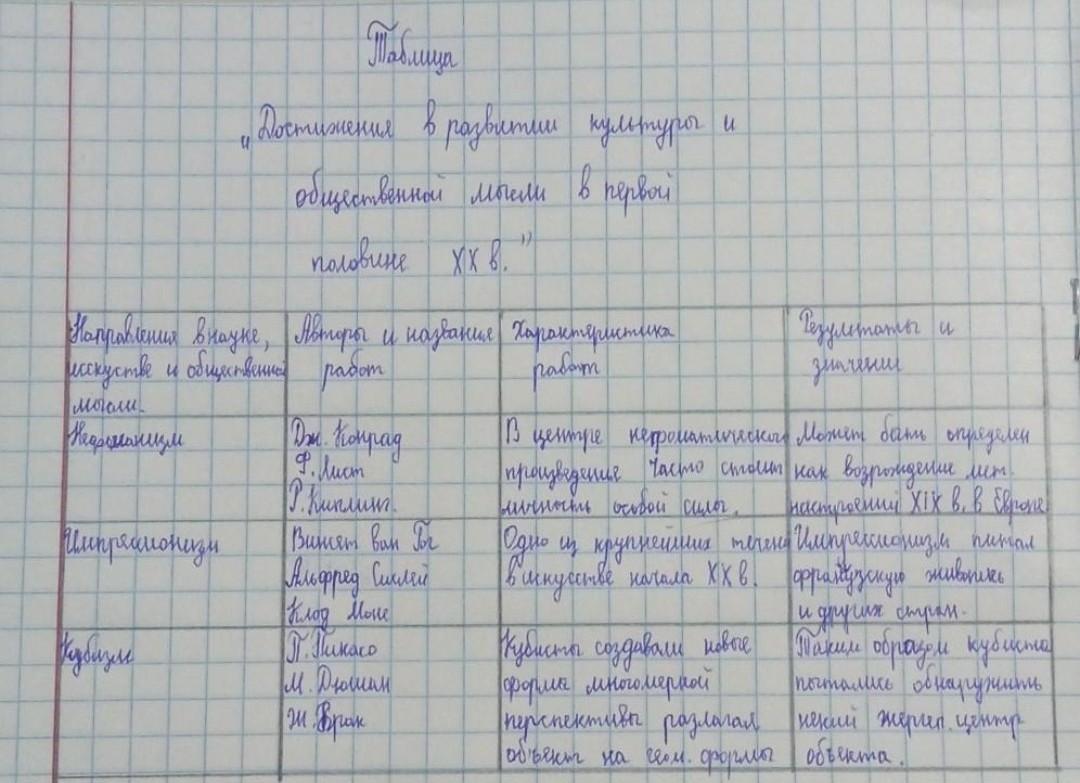 Таблица
„Достижения в развитии культуры и
общественной мысли в первой
половине XX в."
Направления в науке,
исскустве и общественной
мысли.
Авторы и название
работ
Характеристика
работ
Результаты и
значении
Неоромонизм
Дж. Конрад
Ф. Лист
Р. Киплинг.
В центре неороматического
произведение часто стоит
личность особой силы.
Может быть определен
как возрождение лит.
настроений XIX в. в Европе
Импрессионизм
Винсет ван Гог
Альфред Сислей
Клод Моне
Одно из крупнейших течений
в искусстве начала XX в.
Импрессионизм питал
французскую живопись
и других стран.
Кубизм
П. Пикасо
М. Дюшан
Ж. Врак
Кубисты создавали новые
форма многомерной
перспективы разлагал
объект на геом. формы
Таким образом кубиста
пытались обнаружить
некий центр
объекта.